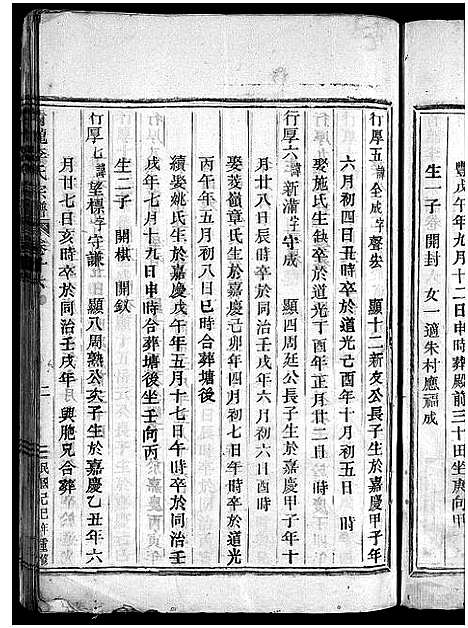 豐戌年九月十二日申時葬殿前三十田坐庚向甲
生一子 開封 女一適朱村應福成
行厚五 諱全成字聲宏 顯十二新友公長子生於嘉慶甲子年
六月初四日丑時卒於道光己酉年十月初五日 時
娶施氏生缺卒於道光丁酉年正月廿二日 時
行厚六 諱新滿字守成 顯四周廷公長子生於嘉慶甲子年十
月廿八日辰時卒於同治壬戌年六月初六日酉時
娶菱嶺章氏生於嘉慶己卯年四月初七日午時卒於道光
丙午年五月初八日巳時合葬塘後
續娶姚氏生於嘉慶戊午年五月十七日午時卒於同治壬
戌年七月十九日申時合葬塘後坐壬向丙
生二子 開棋 開釵
行厚七 諱望標字守謙 顯八周熟公次子生於嘉慶乙丑年六
月廿七日亥時卒於同治壬戌年 與胞兄合葬
龍李氏宗譜 二 民國己巳年重修